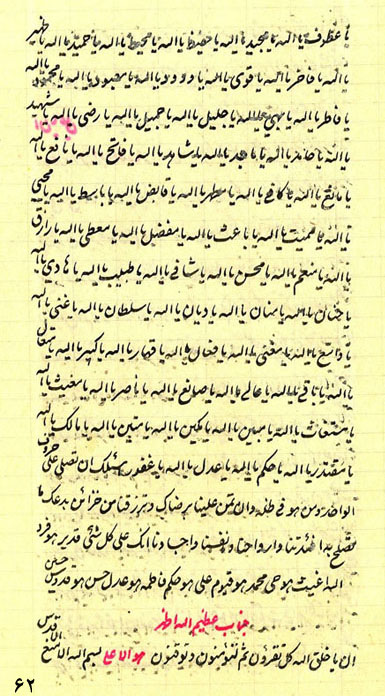 یا عطوف یا الله یا مجید یا الله یا حفیظ یا الله یا محیط یا الله یا حمید یا الله یا ظهیر
یا الله یا فاخر یا الله یا قوی یا الله یا ودود یا الله یا معبود یا الله یا محمود یا الله
یا فاطر یا الله یا یا الله یا جلیل یا الله یا جمیل یا الله یا رضی یا الله یا شهید
یا الله یا حامد یا الله یا ماجد یا الله یا شاهد یا الله یا فاتح یا الله یا نافع یا الله
یا مانع یا الله یا کافی یا الله یا مطهر یا الله یا قابض یا الله یا باسط یا الله یا محیی
یا الله یا ممیت یا الله یا باعث یا الله یا مفضل یا الله یا معطی یا الله یا رازق
یا الله یا منعم یا الله یا محسن یا الله یا شافی یا الله یا طبیب یا الله یا هادی یا الله
یا حنان یا الله یا منان یا الله یا دیان یا الله یا سلطان یا الله یا غنی یا الله
یا واسع یا الله یا مغنی یا الله یا فعال یا الله یا قهار یا الله یا کبیر یا الله یا متعال
یا الله یا باقی یا الله یا عالی یا الله یا صانع یا الله یا ناصر یا الله یا مغیث یا الله
یا مستغاث یا الله یا مبین یا الله یا مکین یا الله یا متین یا الله یا مالک یا الله
یا مقتدر یا الله یا حکم یا الله یا عدل یا الله یا غفور ان تصلی علی
الواحد و من هو فی ظله و ان تمن علینا برضاک و ترزقنا من خزائن
و ارواحنا و نفسنا و اجسادنا انک علی کل شیء قدیر هو فرد
هو حی محمد هو قیوم علی هو حکم فاطمه هو عدل حسن هو قدوس حسین
جناب عظیم الله اطهر
ان یا خلق الله کل تقرؤن ثم لتؤمنون و توقنون هو الاعلی بسم الله الامنع الاقدس
۶۲